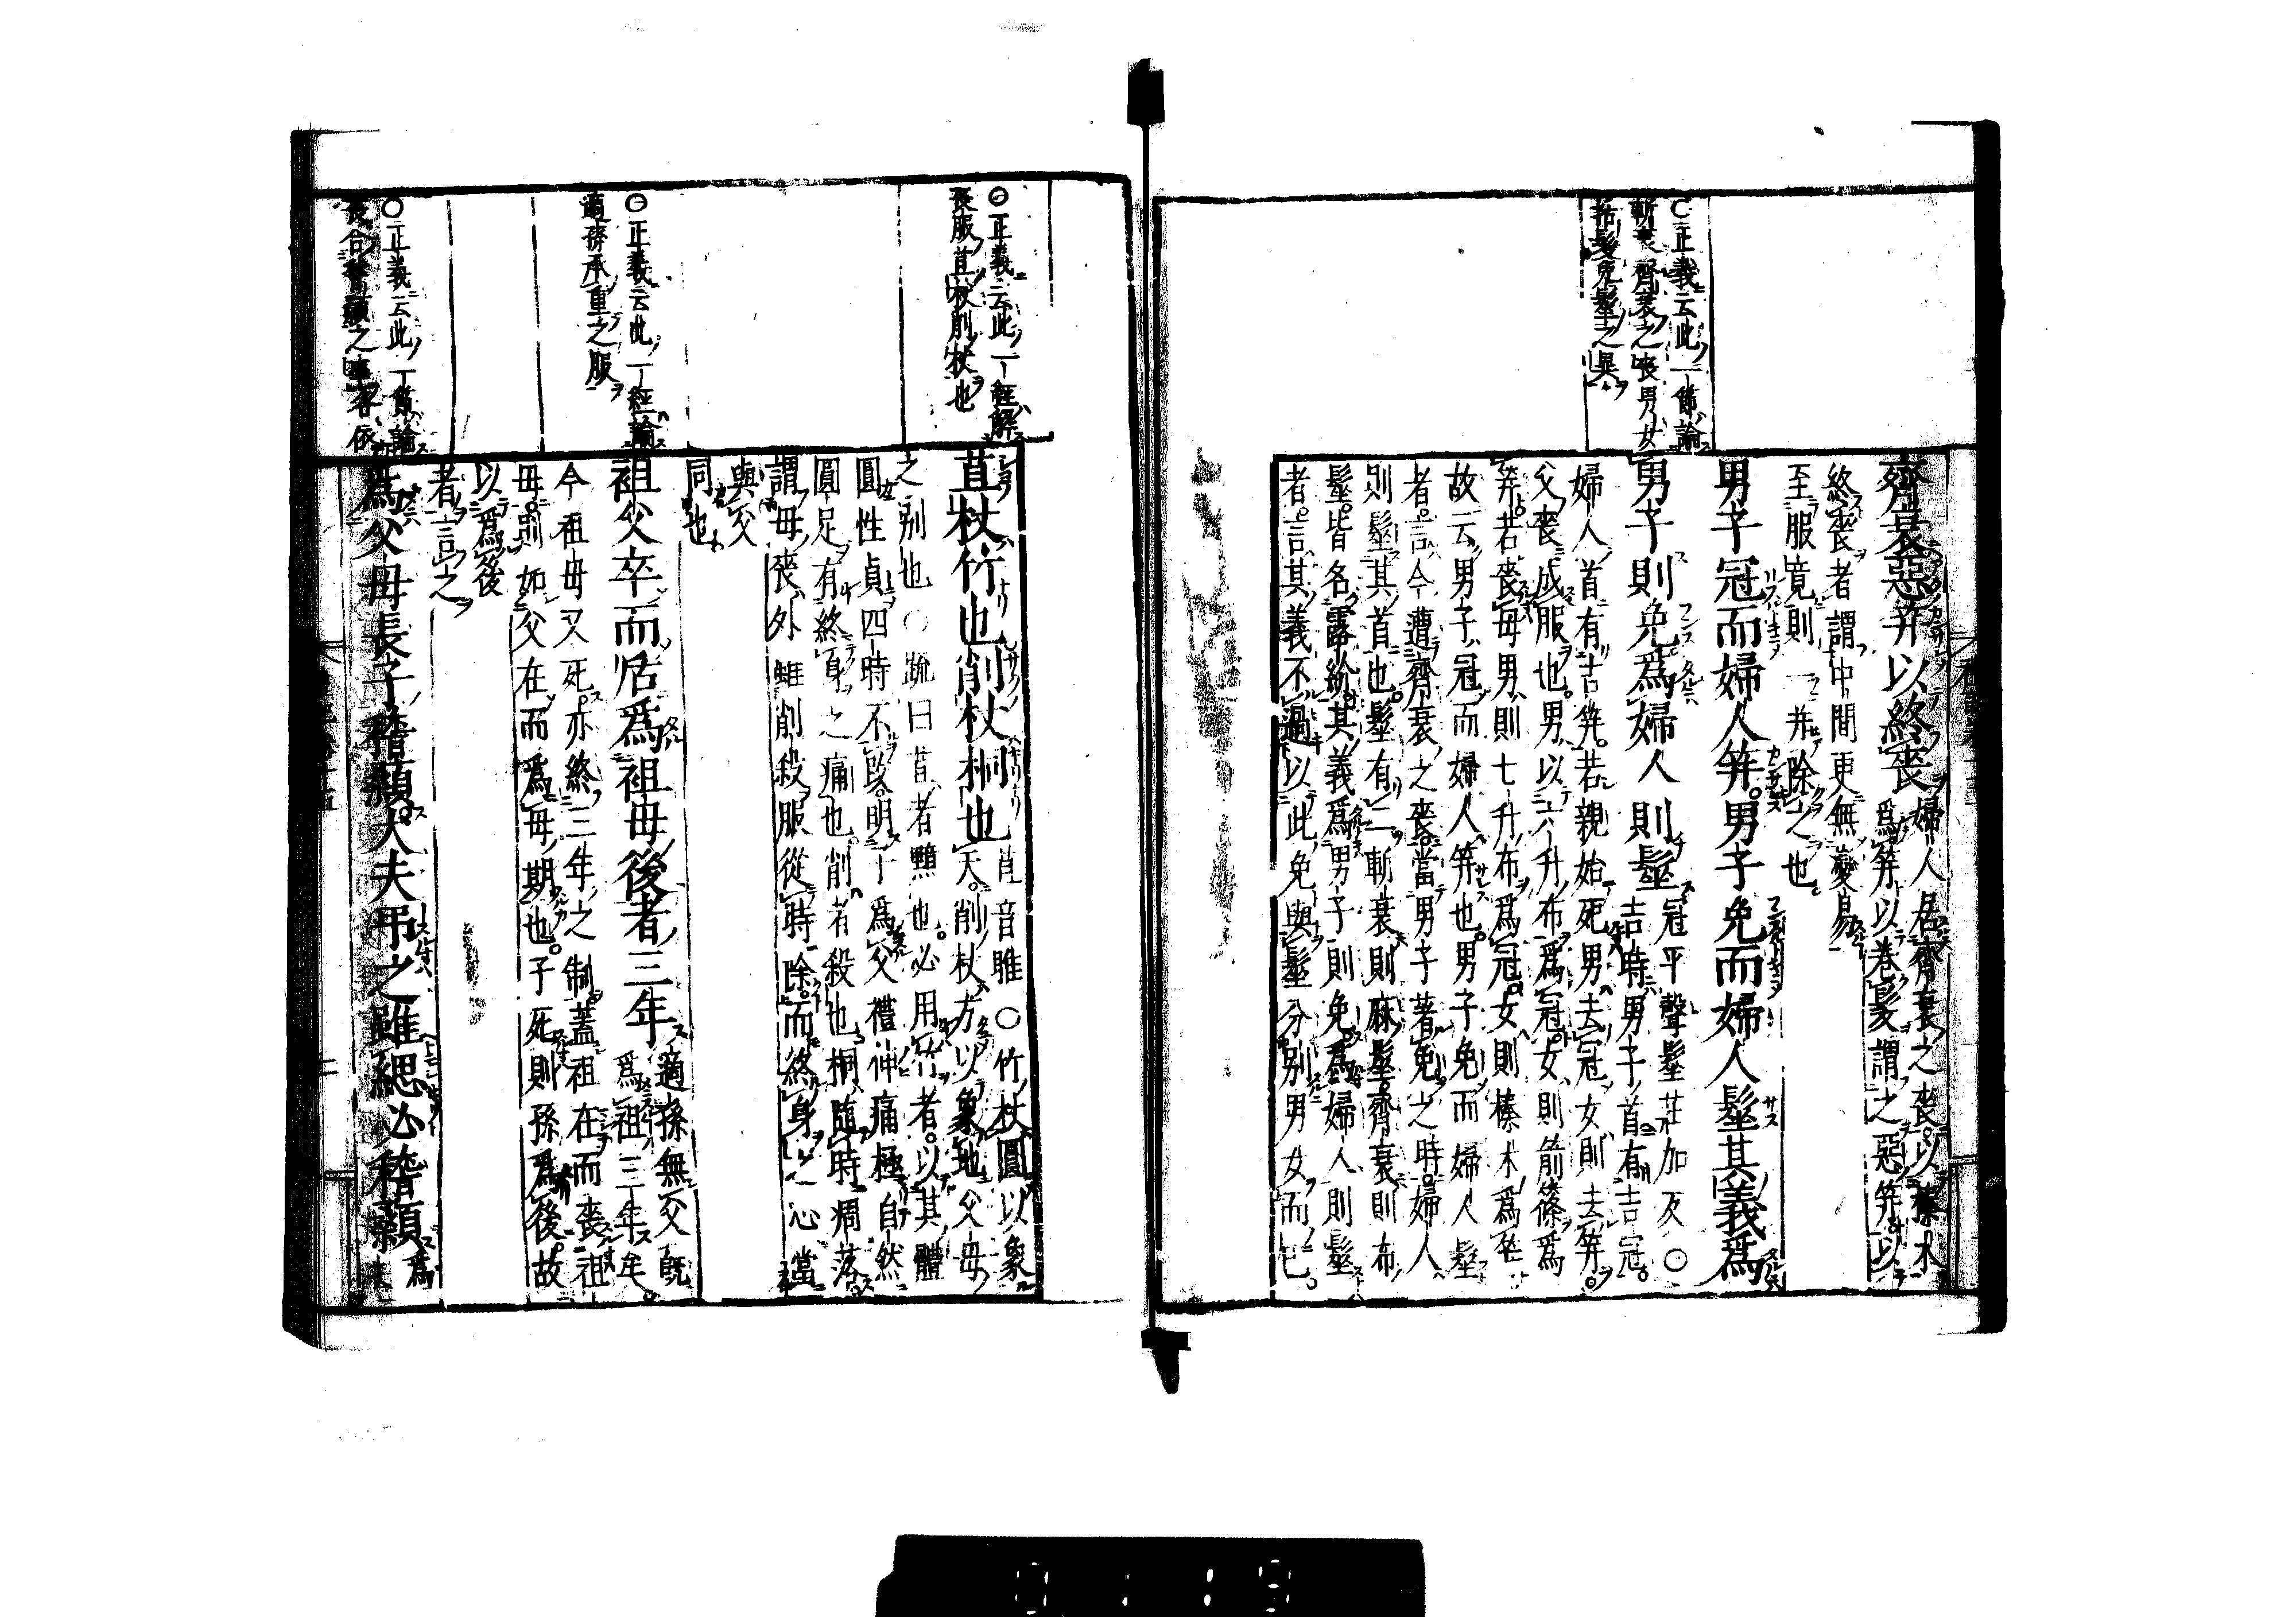 〇正義云此一節論
斬衰齊衰之喪男女
括髮免髽之異
齊衰惡笄以終喪婦人居齊衰之喪以榛木
爲笄以卷髮謂之惡笄以
終喪者謂中間更無變易
至服竟則一并除之也
男子冠而婦人笄男子免而婦人髽其義爲
男子則免爲婦人則髽冠平聲髽莊加反〇
吉時男子首有吉冠
婦人首有吉笄若親始死男去冠女則去笄
父喪成服也男以六升布爲冠女則箭篠爲
笄若喪母男則七升布爲冠女則榛木爲笄
故云男子冠而婦人笄也男子免而婦人髽
者言今遭齊衰之喪當男子著免之時婦人
則髽其首也髽有二斬衰則麻髽齊衰則布
髽皆名露紒其義爲男子則免爲婦人則髽
者言其義不過以此免與髽分別男女而已
〇正義云此一經解
喪服苴杖削杖也
苴杖竹也削杖桐也苴音雎〇竹杖圓以象
天削杖方以象地父母
之別也〇疏曰苴者黯也必用竹者以其體
圓性貞四時不改明子爲父禮神痛極自然
圓足有終身之痛也削者殺也桐隨時凋落
謂母喪外雖削殺服從時除而終身之心當
與父
同也
〇正義云此一經論
適孫承重之服
祖父卒而后爲祖母後者三年適孫無父旣
爲祖三年矣
今祖母又死亦終三年之制蓋祖在而喪祖
母則如父在而爲母期也子死則孫爲後故
以爲後
者言之
〇正義云此一節論
喪合稽顙之事各依
爲父母長子稽顙大夫弔之雖緦必稽顙爲